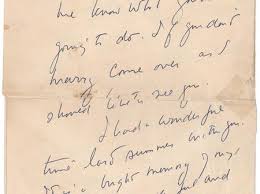 me know what you
going to do. If you don't
marry come over as I
should like to see you.
I had a wonderful
time last summer with you.
bright memory of my
and